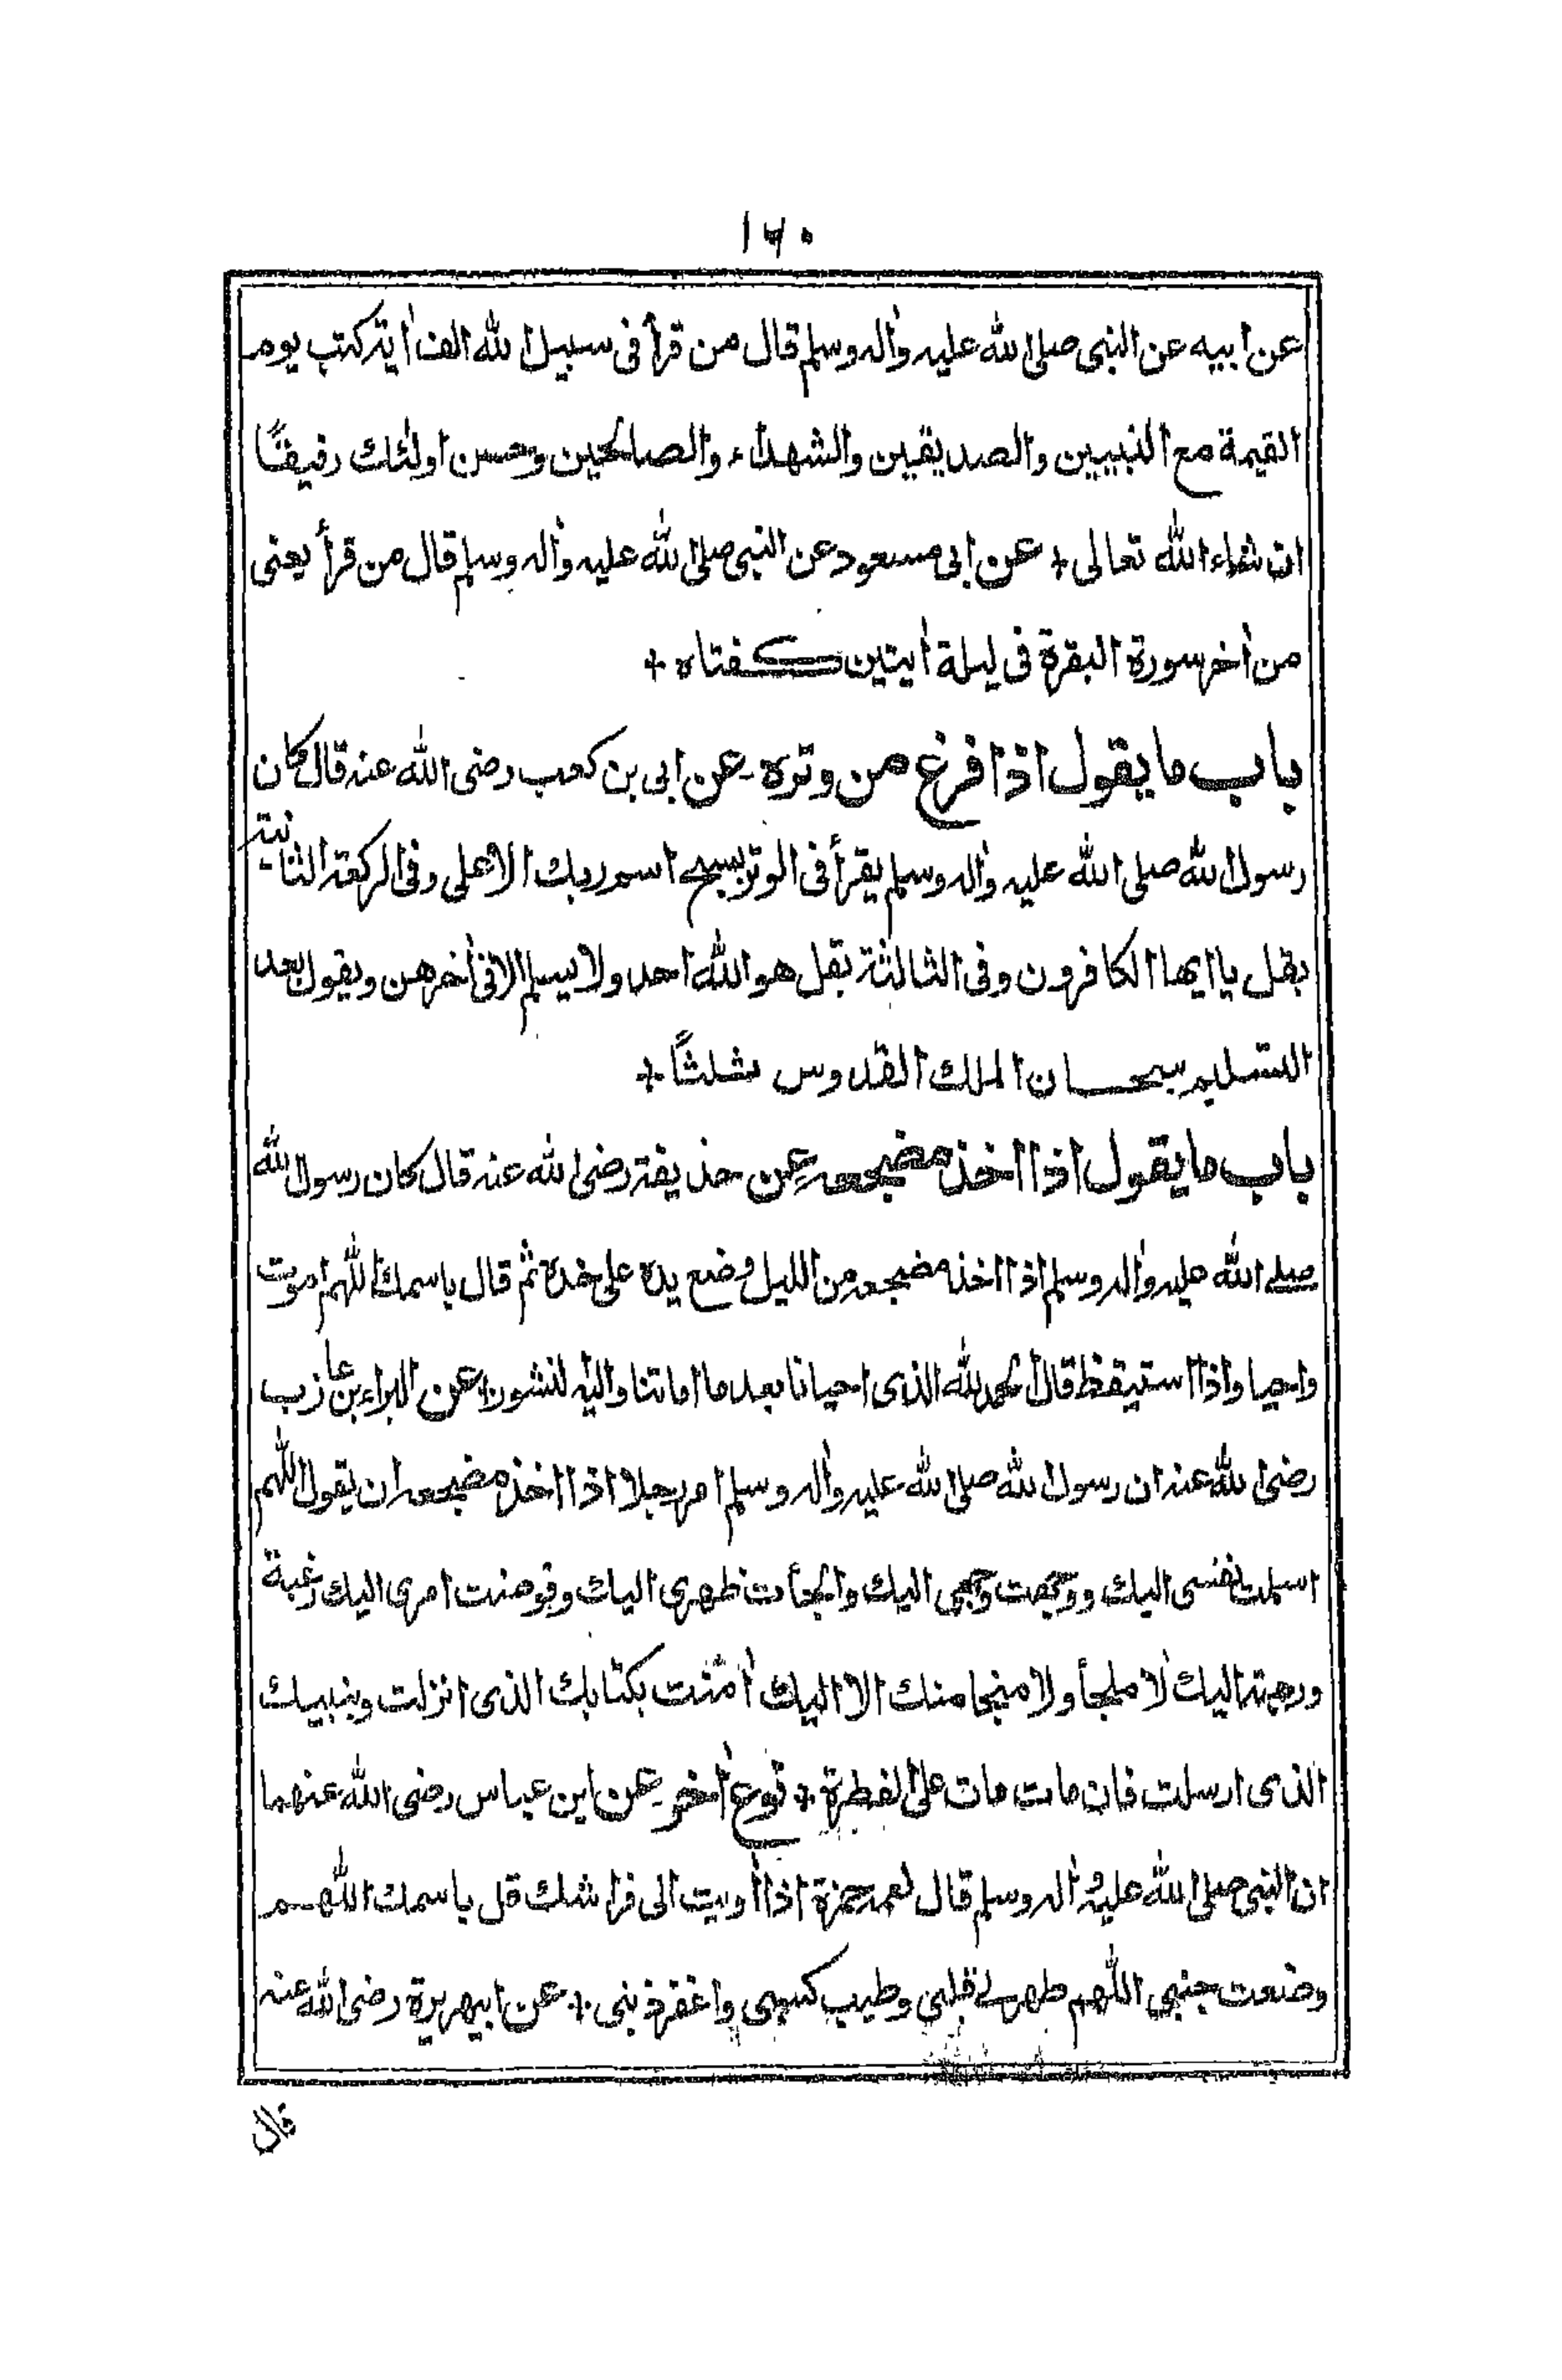 ۱۶۰
عن ابيه عن النبى صلى الله عليه واٰله وسلم قال من قرأ فى سبيل الله الف اٰية كتب يوم
القيمة مع النبيين والصديقين والشهداء والصالحين وحسن اولئك رفيقًا
ان شاء الله تعالى + عن ابى مسعود عن النبى صلى الله عليه واٰله وسلم قال من قرأ يعنى
من اٰخر سورة البقرة فى ليلة اٰيتين كفتاه +
باب ما يقول اذا فرغ من وتره ـ عن ابى بن كعب رضى الله عنه قال كان
رسول الله صلى الله عليه واٰله وسلم يقرأ فى الوتر بسبح اسم ربك الاعلى وفى الركعة الثانية
بقل يا ايها الكافرون وفى الثالثة بقل هو الله احد ولا يسلم الا فى اٰخرهن ويقول بعد
التسليم سبحان الملك القدوس ثلثًا +
باب ما يقول اذا اخذ مضجعه عن حذيفة رضى الله عنه قال كان رسول الله
صلى الله عليه واٰله وسلم اذا اخذ مضجعه من الليل وضع يده على خده ثم قال باسمك اللهم اموت
واحيا واذا استيقظ قال الحمد لله الذى احيانا بعد ما اماتنا واليه النشور + عن البراء بن عازب
رضى الله عنه ان رسول الله صلى الله عليه واٰله وسلم امر رجلا اذا اخذ مضجعه ان يقول اللهم
اسلمت نفسى اليك ووجهت وجهى اليك والجأت ظهرى اليك وفوضت امرى اليك رغبة
ورهبة اليك لا ملجأ ولا منجا منك الا اليك اٰمنت بكتابك الذى انزلت وبنبيك
الذى ارسلت فان مات مات على الفطرة + نوع اٰخر عن ابن عباس رضى الله عنهما
ان النبى صلى الله عليه واٰله وسلم قال لعمه حمزة اذا اويت الى فراشك قل باسمك اللهم
وضعت جنبى اللهم طهر لى قلبى وطيب كسبى واغفر ذنبى + عن ابيهريرة رضى الله عنه
قال